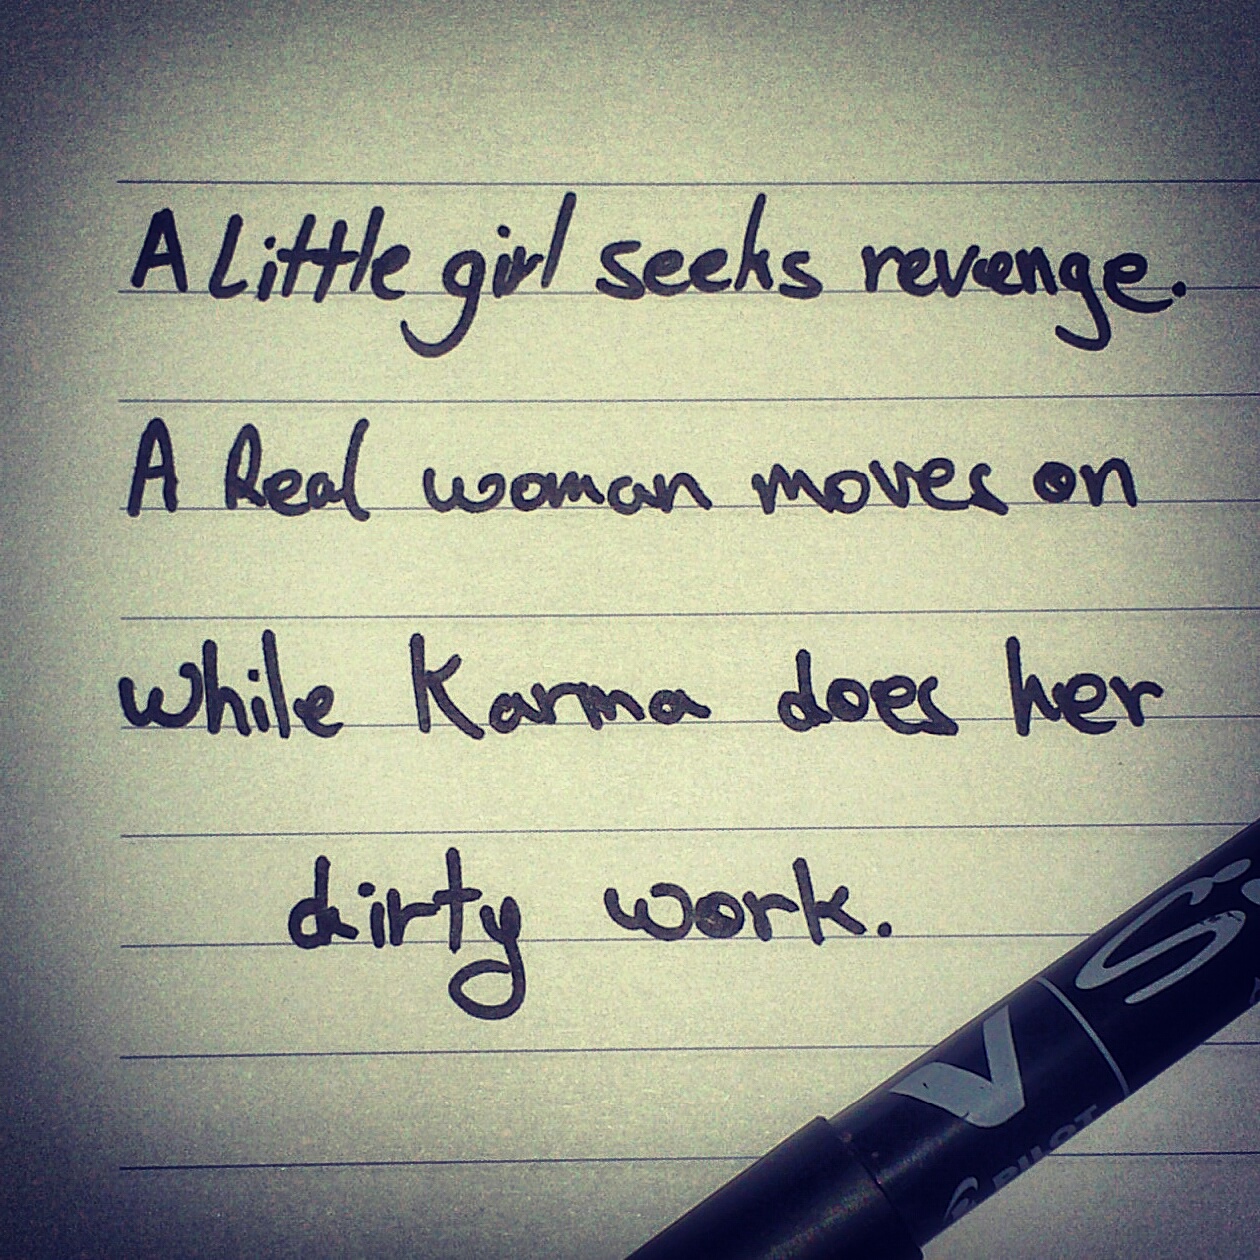 A Little girl seeks revenge.
A Real woman moves on
while Karma does her
dirty work.
V S
PILOT